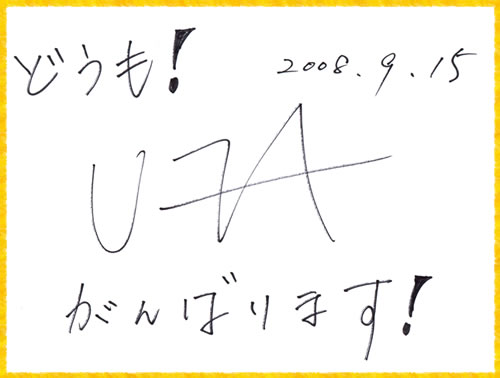 どうも! 2008.9.15
UZA
がんばります!